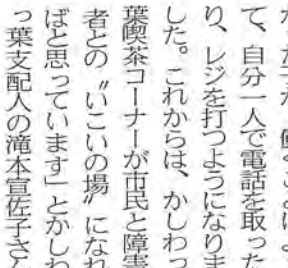 て、自分一人で電話を取った
り、レジを打つようになりま
した。これからは、かしわっ
葉喫茶コーナーが市民と障害
者との〝いこいの場〟になれ
ばと思っています」とかしわ
っ葉支配人の滝本宣佐子さん